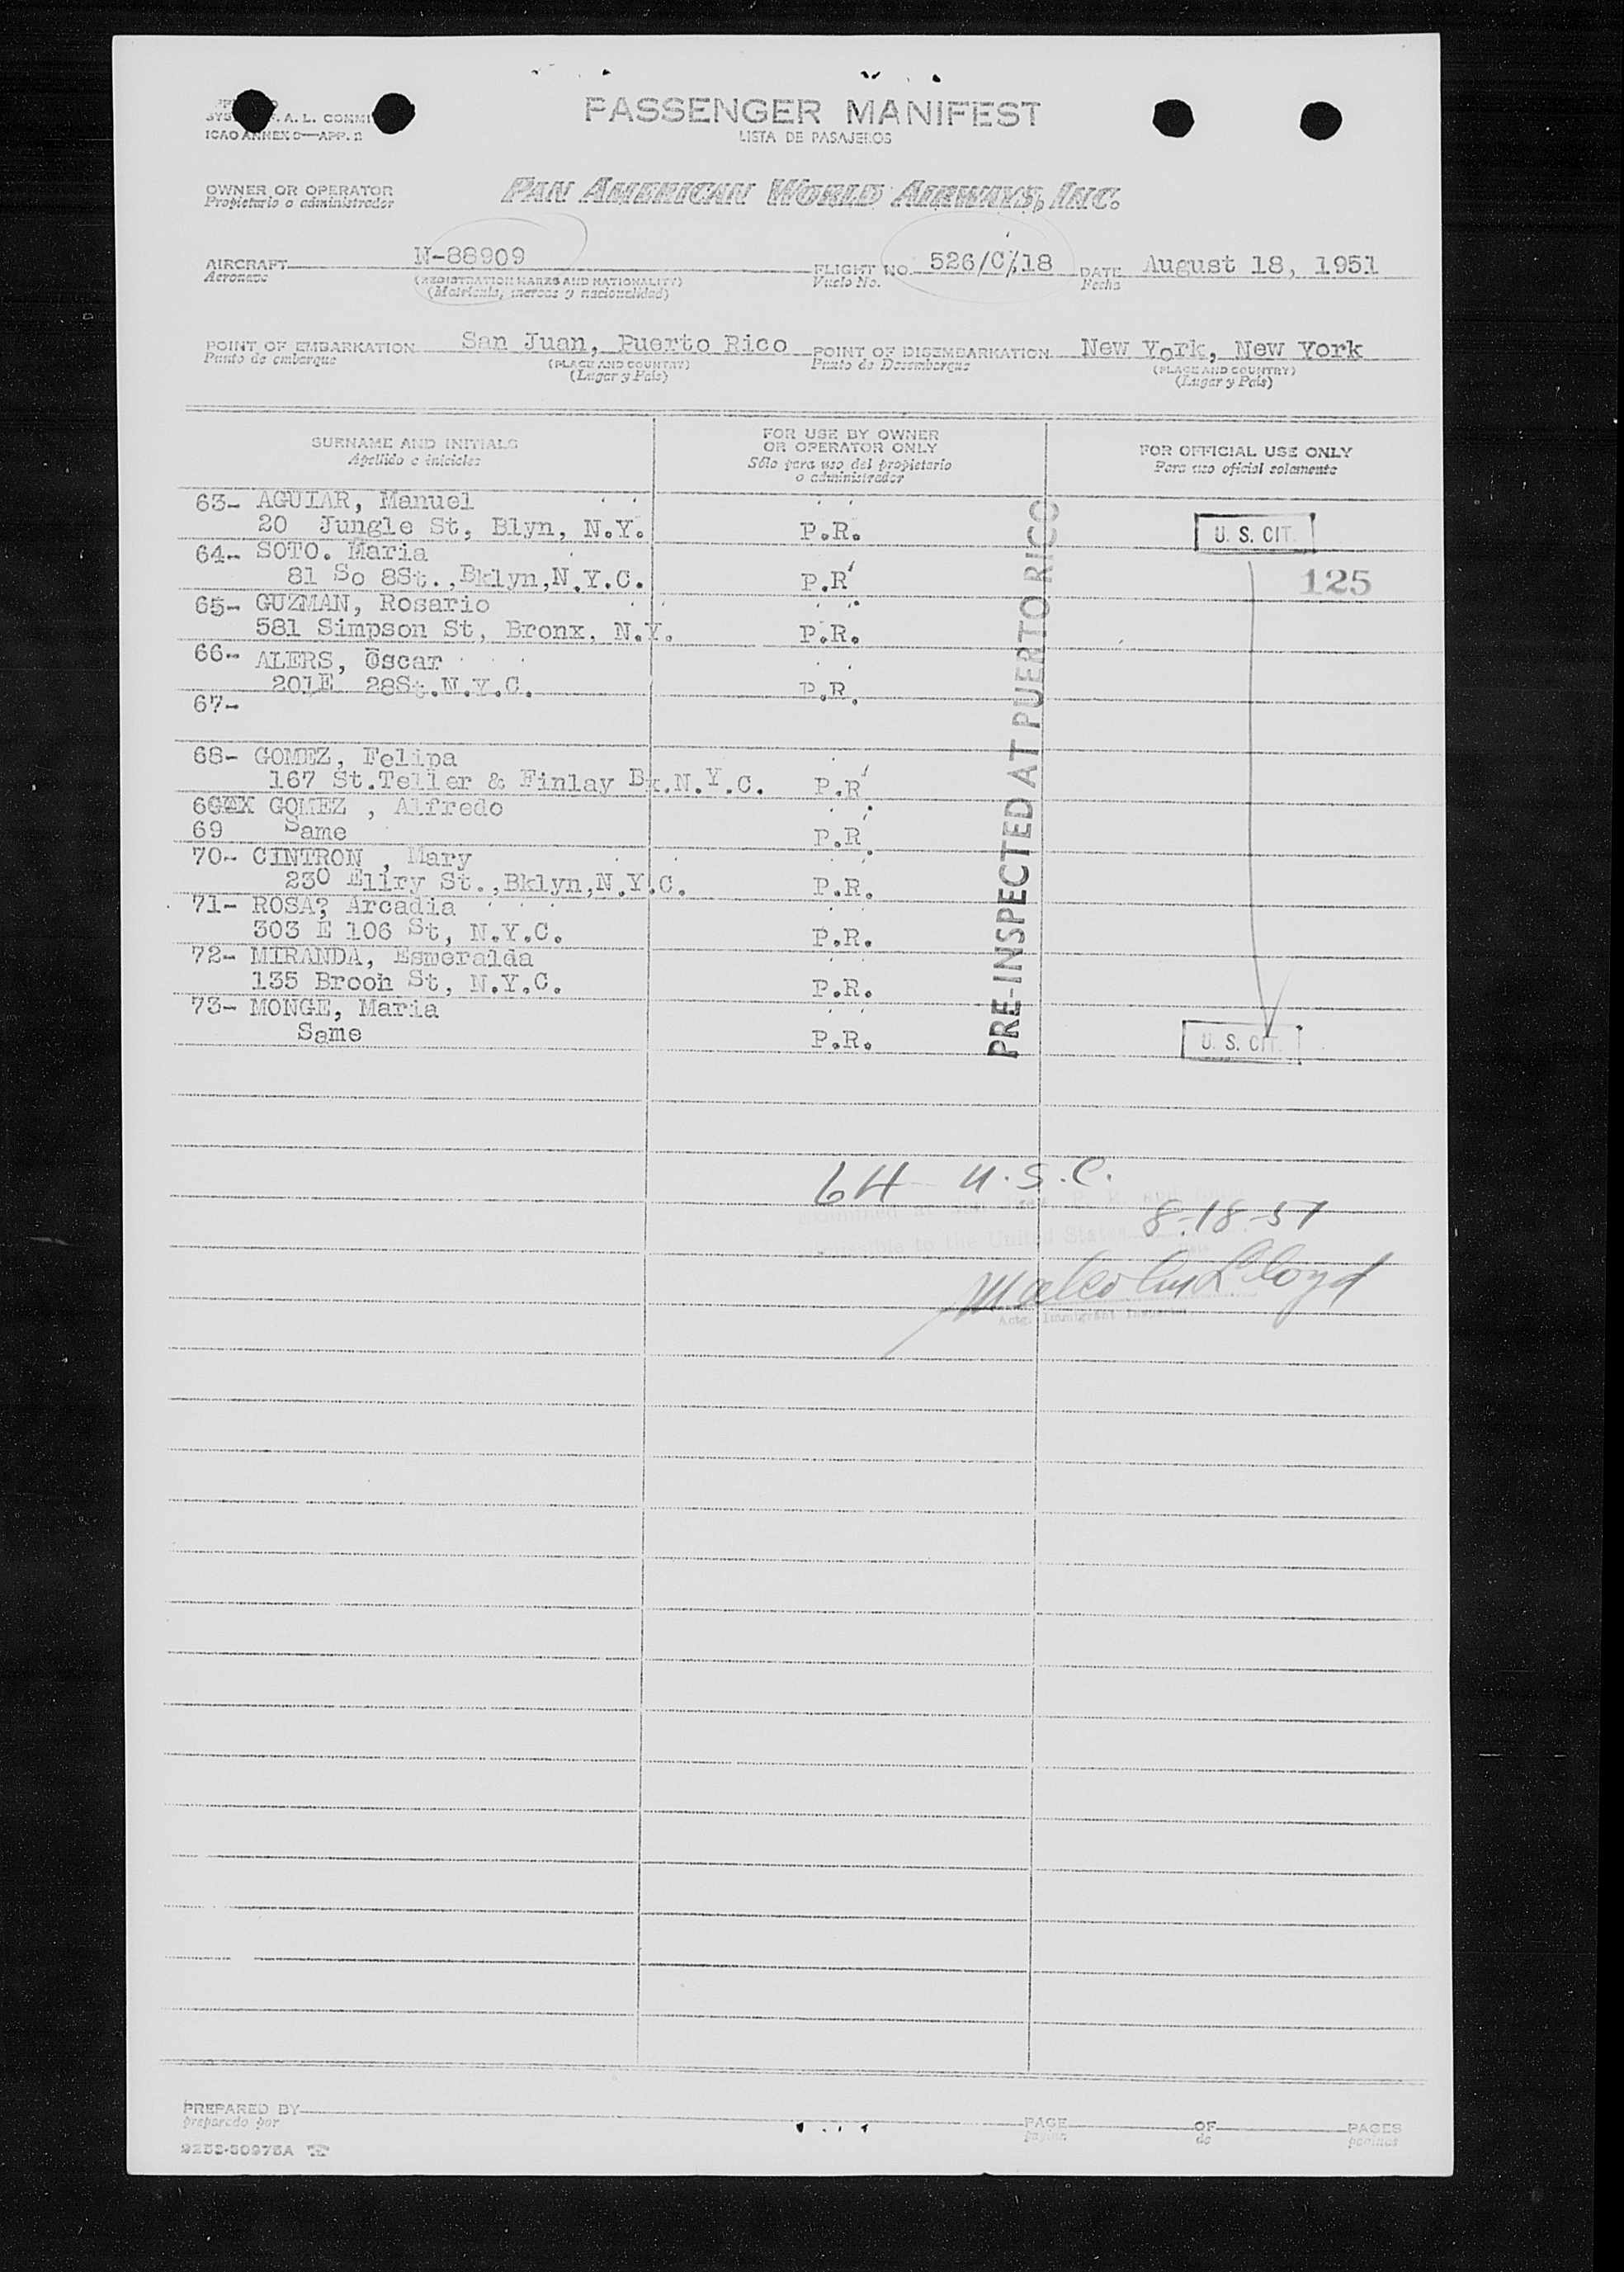 PASSENGER MANIFEST
LISTA DE PASAJEROS
A. L. COMMI
ICAO ANNEX 9—APP. 2
OWNER OR OPERATOR
Propietario o administrador
PAN AMERICAN WORLD AIRWAYS, INC.
AIRCRAFT N-88909 FLIGHT NO. 526/C/18 DATE August 18, 1951
Aeronave (REGISTRATION MARKS AND NATIONALITY) Vuelo No. Fecha
(Matrícula, marcas y nacionalidad)
POINT OF EMBARKATION San Juan, Puerto Rico POINT OF DISEMBARKATION New York, New York
Punto de embarque (PLACE AND COUNTRY) Punto de Desembarque (PLACE AND COUNTRY)
(Lugar y País) (Lugar y País)
SURNAME AND INITIALS FOR USE BY OWNER OR OPERATOR ONLY FOR OFFICIAL USE ONLY
Apellido e iniciales Sólo para uso del propietario o administrador Para uso oficial solamente
63- AGUIAR, Manuel
20 Jungle St, Blyn, N.Y. P.R. U. S. CIT.
64- SOTO. Maria
81 So 8St.,Bklyn,N.Y.C. P.R 125
65- GUZMAN, Rosario
581 Simpson St, Bronx, N.Y. P.R.
66- ALERS, Oscar
201E 28St.N.Y.C. P.R.
67-
68- GOMEZ, Felipa
167 St.Teller & Finlay Bx.N.Y.C. P.R
GOMEZ , Alfredo
69 Same P.R.
70- CINTRON , Mary
230 Ellry St.,Bklyn,N.Y.C. P.R.
71- ROSA? Arcadia
303 E 106 St, N.Y.C. P.R.
72- MIRANDA, Esmeralda
135 Brooh St, N.Y.C. P.R.
73- MONGE, Maria
Same P.R. U. S. CIT.
PRE-INSPECTED AT PUERTO RICO
64 U.S.C.
8-18-51
to the United States
Malcolm Lloyd
Actg. Immigrant Inspector
PREPARED BY PAGE OF PAGES
preparado por página de páginas
9252-50975A